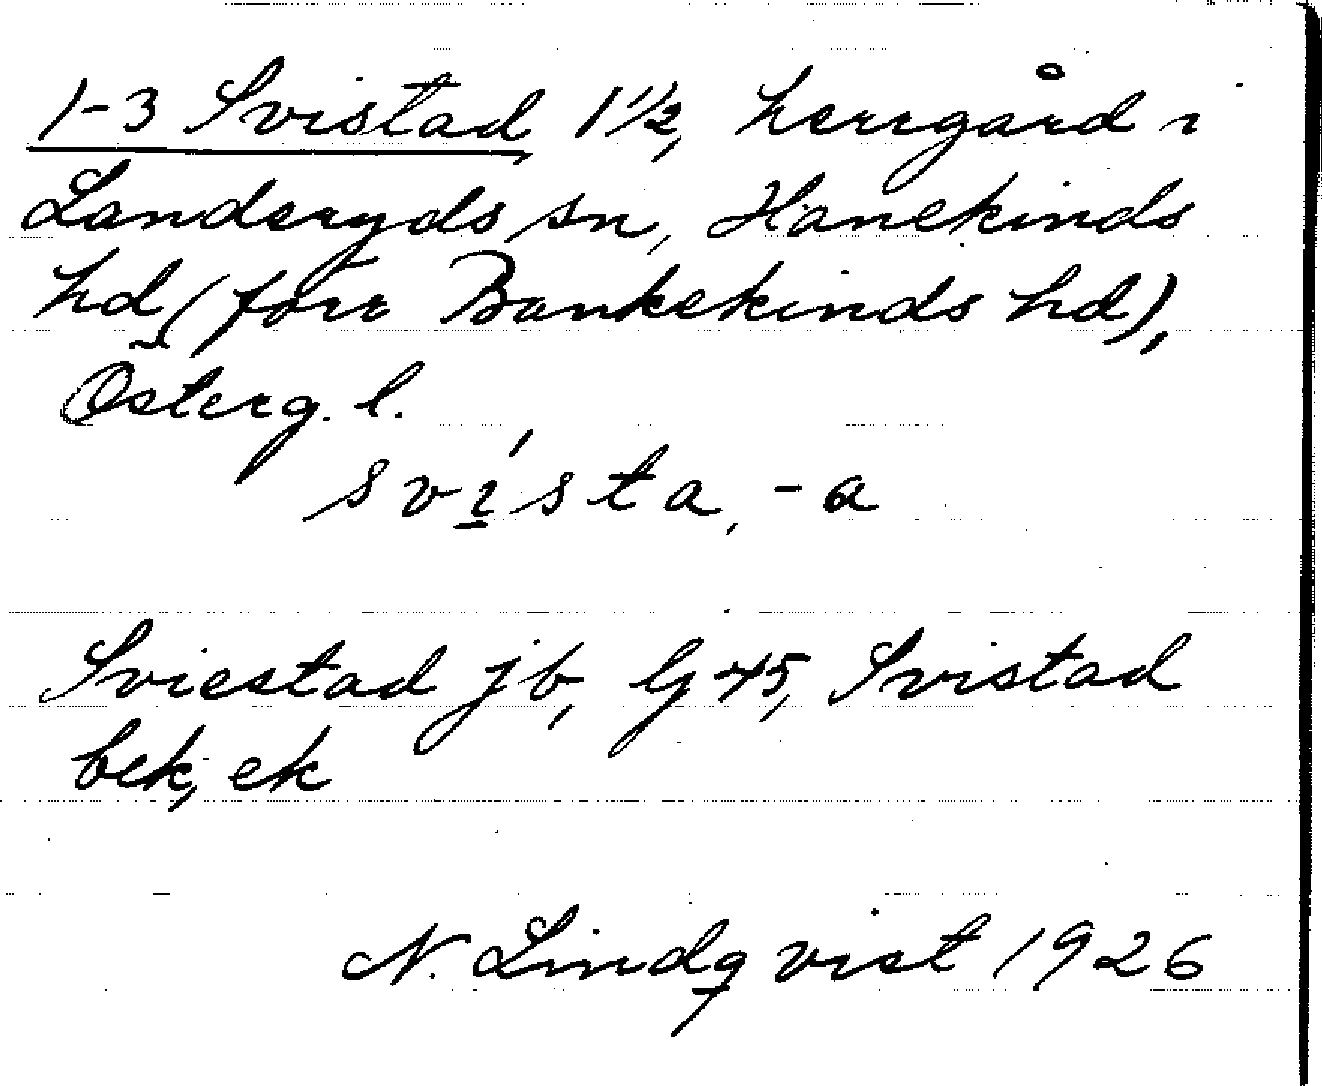 1-3 Svistad, 1 1/2, herrgård i
Landeryds sn, Hanekinds
hd (förr Bankekinds hd),
Österg. l.
sví̲sta, -a
Sviestad jb, G 45, Svistad
bek, ek
N. Lindqvist 1926